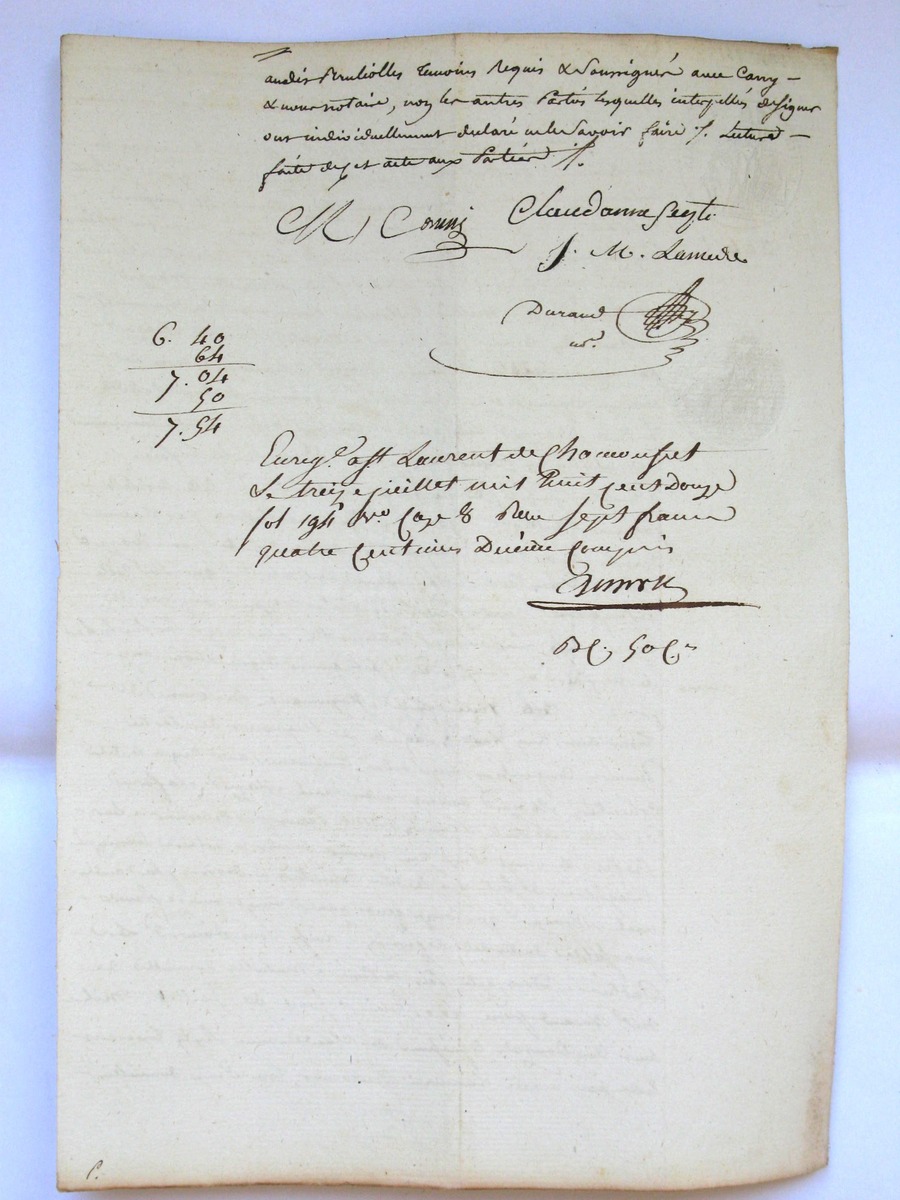 audit Bruliolles temoins Requis & Soussignés avec Cony
& nous notaire, non les autres Parties lesquelles interpellés de signer
ont individuellement declaré ne le Savoir faire /. Lecture
faite de cet acte aux Parties /.
Cony Claudanne
J. M. Lamure
Durand
nre.
6. 40
64
7. 04
50
7. 54
Enregé. a St Laurent de Chamousset
Le treize juillet mil huit cent Douze
fol 194 Vo Case 8 Recu sept francs
quatre Centimes Dixième Compris
50 Ces